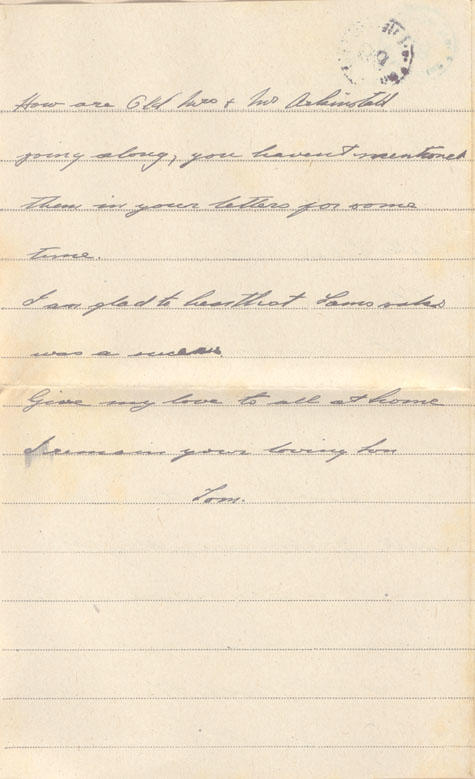 How are Old Mrs & Mr
going along, you havent mentioned
them in your letters for some
time.
I am glad to hear that Sams
was a success
Give my love to all at home
I remain your loving Son
Tom.